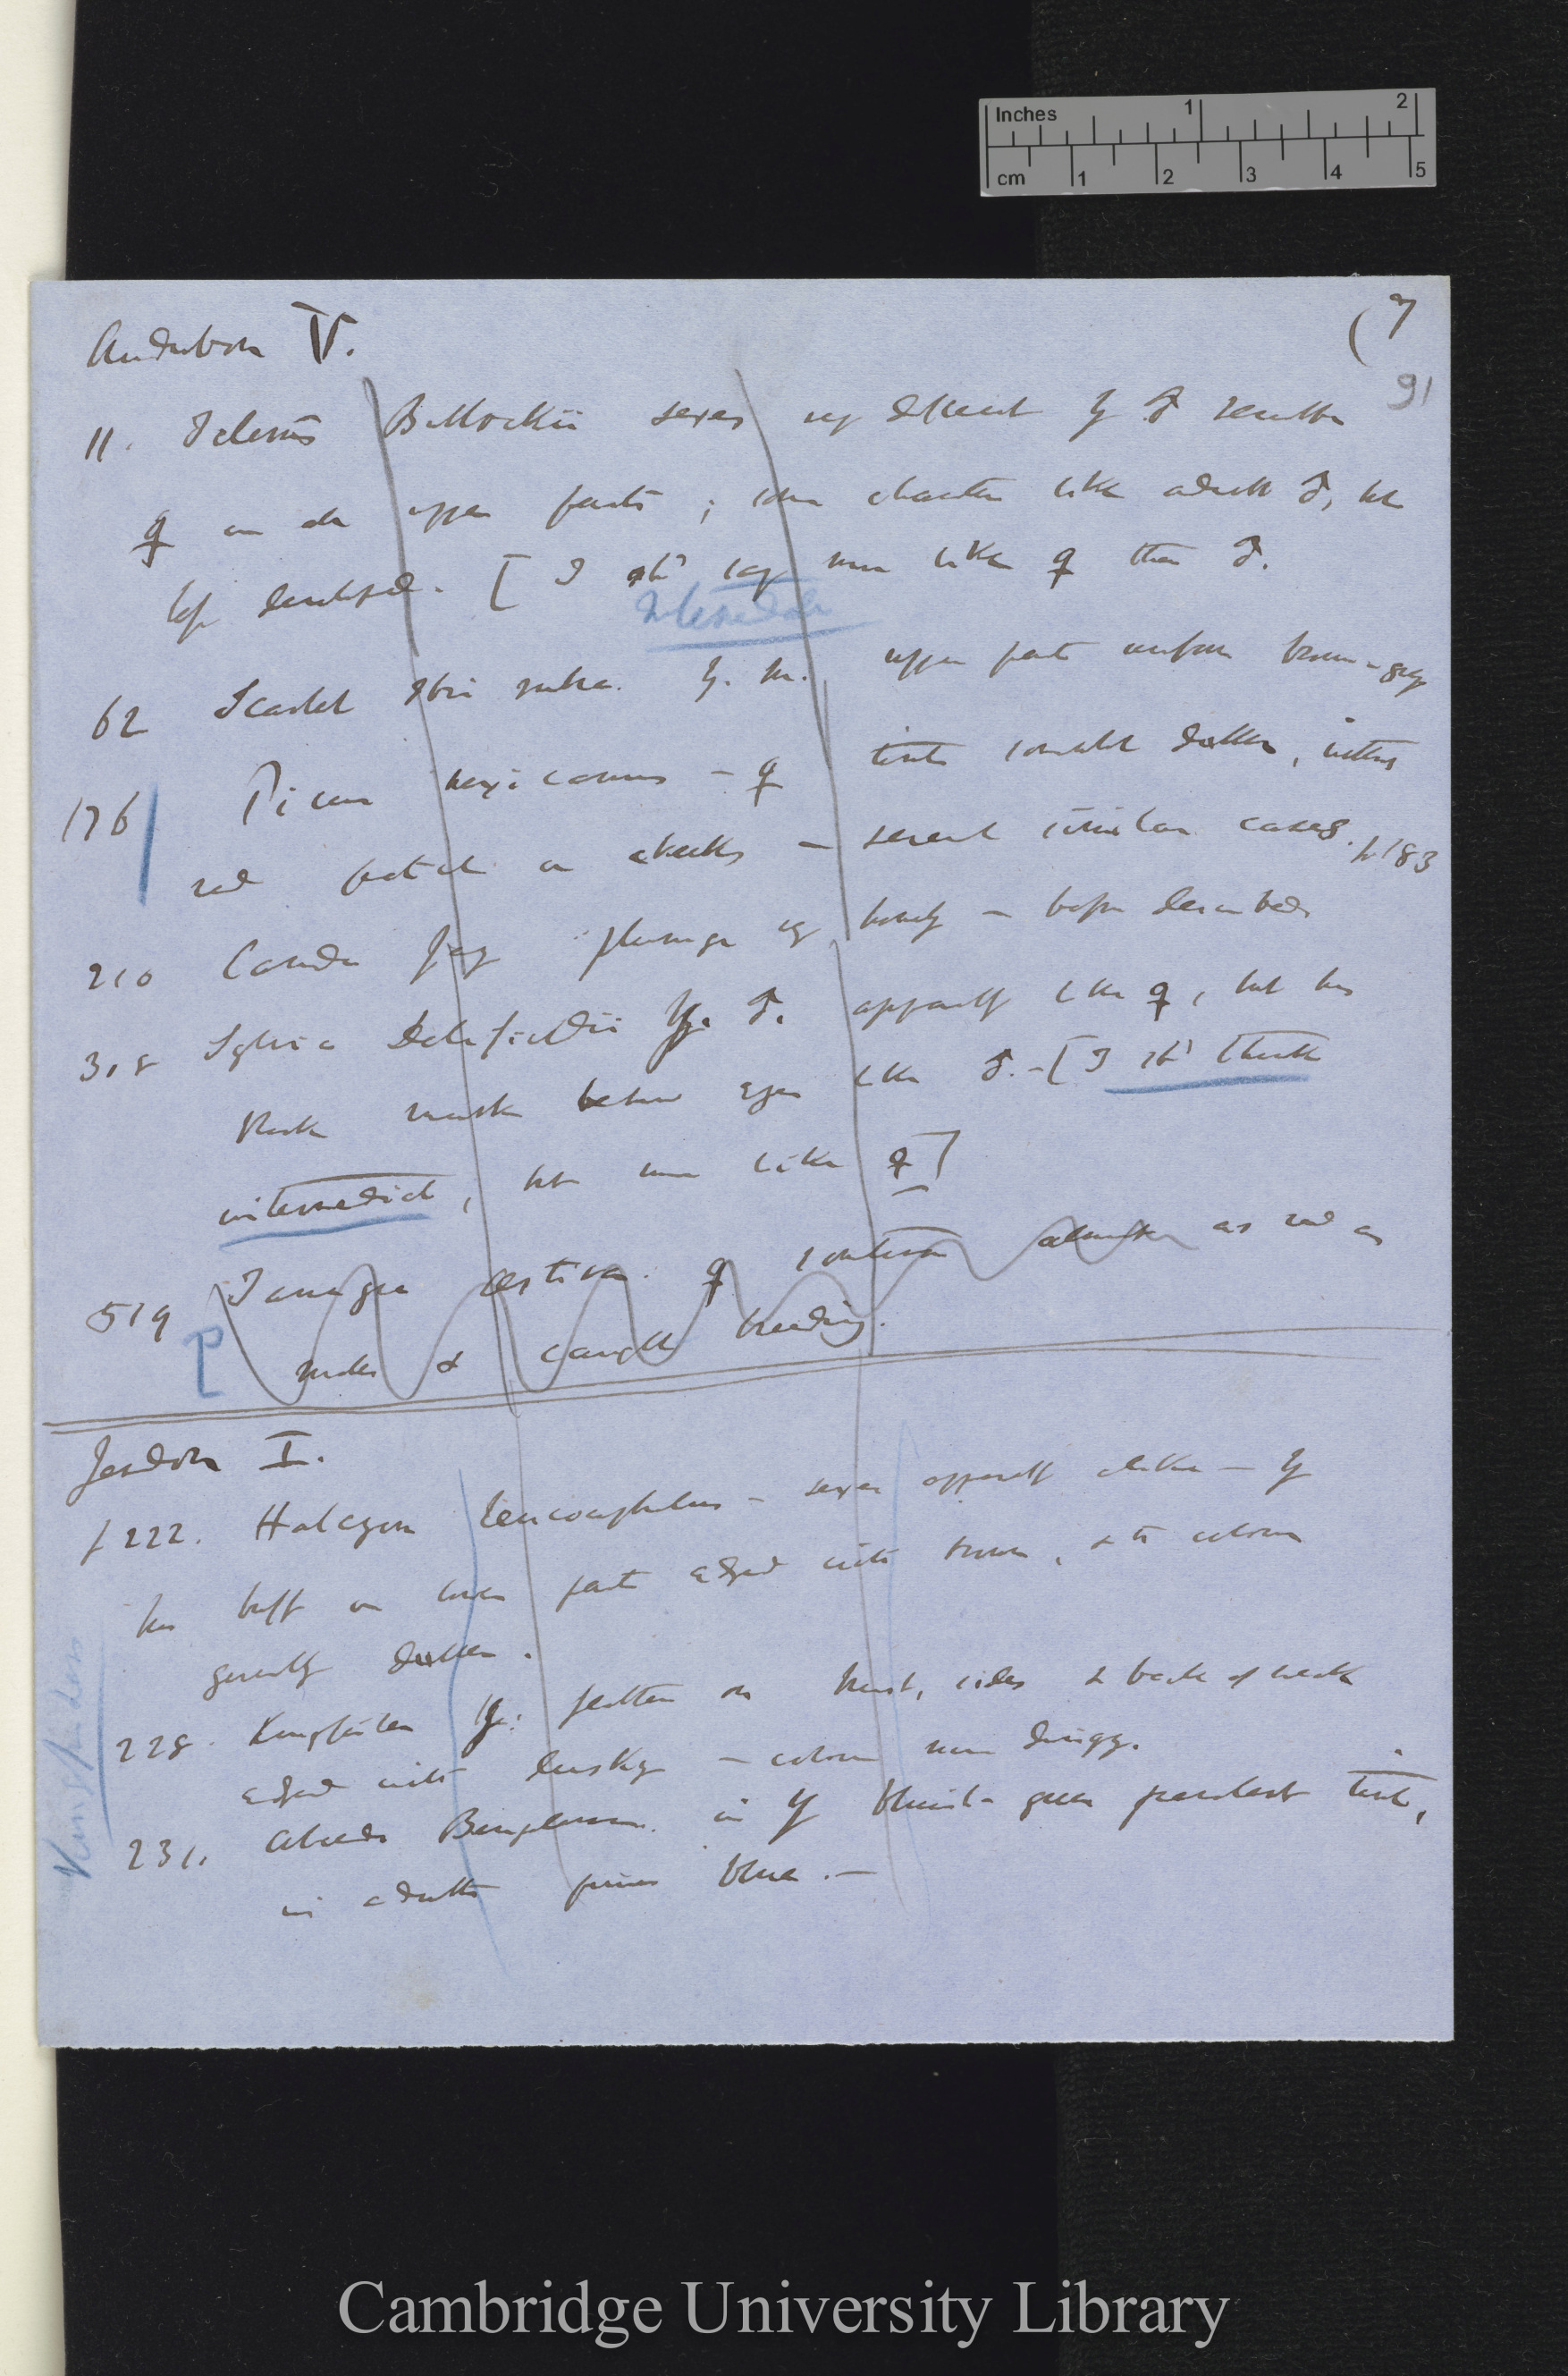 Inches 1 2
cm 1 2 3 4 5
Audubon V. (7
91
11. Icterus Bullockii sexes very different Yg ♂ resembles
♀ on the upper parts; throat character like adult ♂, but
less developed. [I shd say more like ♀ than ♂.
Intermediate
62 Scarlet Ibis rubra. Y. M. upper parts uniform brown-grey
176 Picus mexicanus — ♀ tints somewhat duller, without
red patch on cheeks — several similar cases. p183
210 Canada Jay plumage of young — before described
318 Sylvia Delafieldii Yg. ♂. apparently like ♀, but has
black mark below eyes like ♂. — [I shd think
intermediate, but more like ♀]
519 Tanagra aestiva. ♀ sometimes almost as red as
males & caught breeding.
Jerdon I.
p 222. Halcyon leucocephalus — sexes apparently alike — Yg
has buff on lower parts edged with brown, & the colours
generally duller.
228. Kingfisher Yg: feathers on breast, sides & back of neck
edged with dusky — colours more dingy.
231. Alcedo Bengalensis in Yg blueish-green prevalent tint,
in adults purer blue. —
Kingfishers
Cambridge University Library